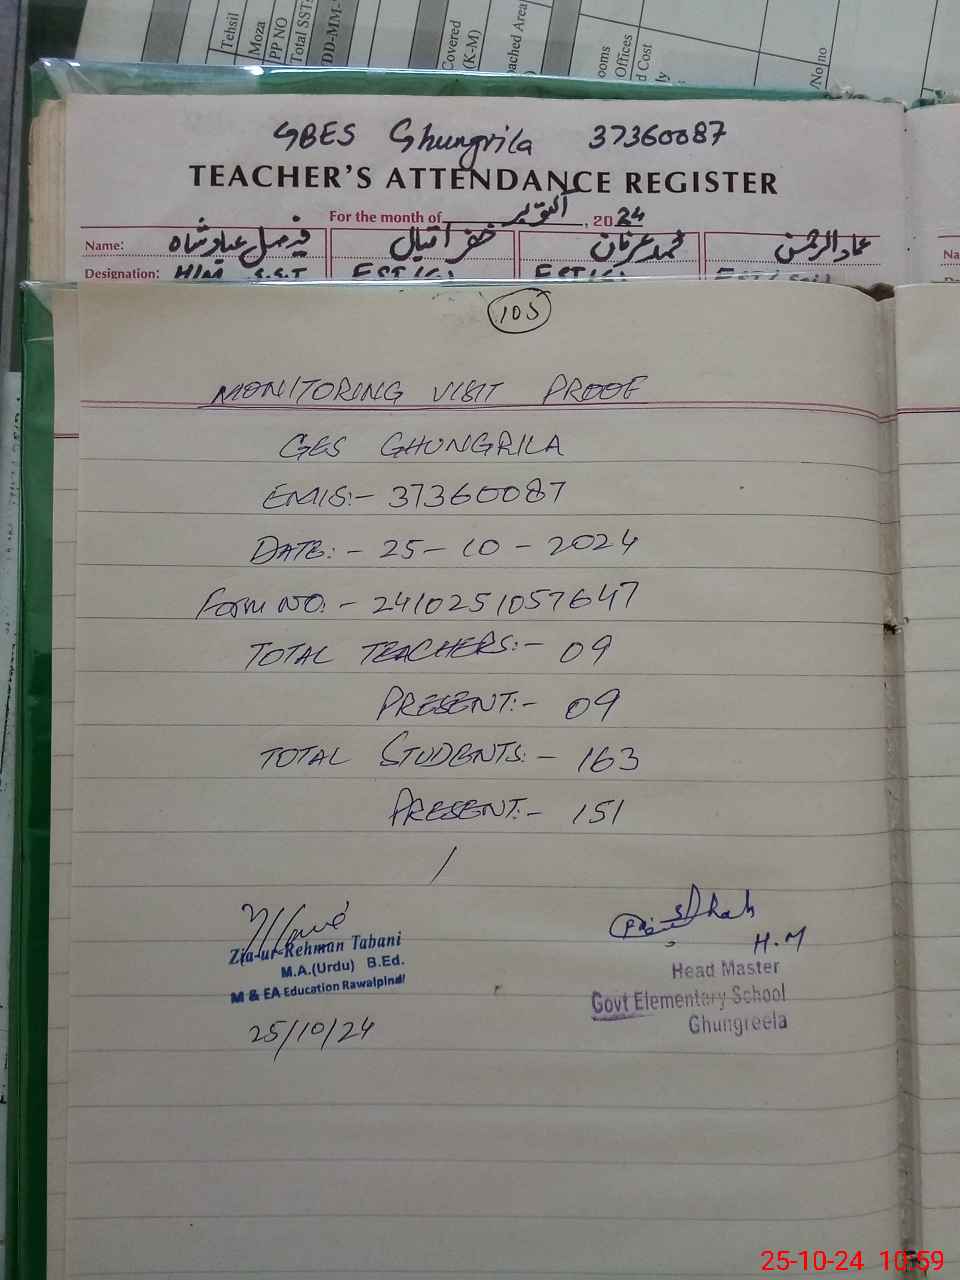 Tehsil
Moza
PP NO
Total SSTs
DD-MM-
Covered
(K-M)
ached Area
ooms
Offices
d Cost
ly
/No no
GBES Ghungrila 37360087
TEACHER'S ATTENDANCE REGISTER
For the month of اکتوبر, 2024
Name: فیصل عباد شاہ خضر اقبال محمد عرفان عماد الرحمن
Na
Designation: H/M S.S.T EST(G) EST(G)
105
MONITORING VISIT PROOF
GES GHUNGRILA
EMIS:- 37360087
DATE:- 25-10-2024
Form NO.- 2410251057647
TOTAL TEACHERS:- 09
PRESENT:- 09
TOTAL STUDENTS:- 163
PRESENT:- 151
Zia-ur-Rehman Tabani
M.A.(Urdu) B.Ed.
M & EA Education Rawalpindi
25/10/24
H.M
Head Master
Govt Elementary School
Ghungreela
25-10-24 10:59